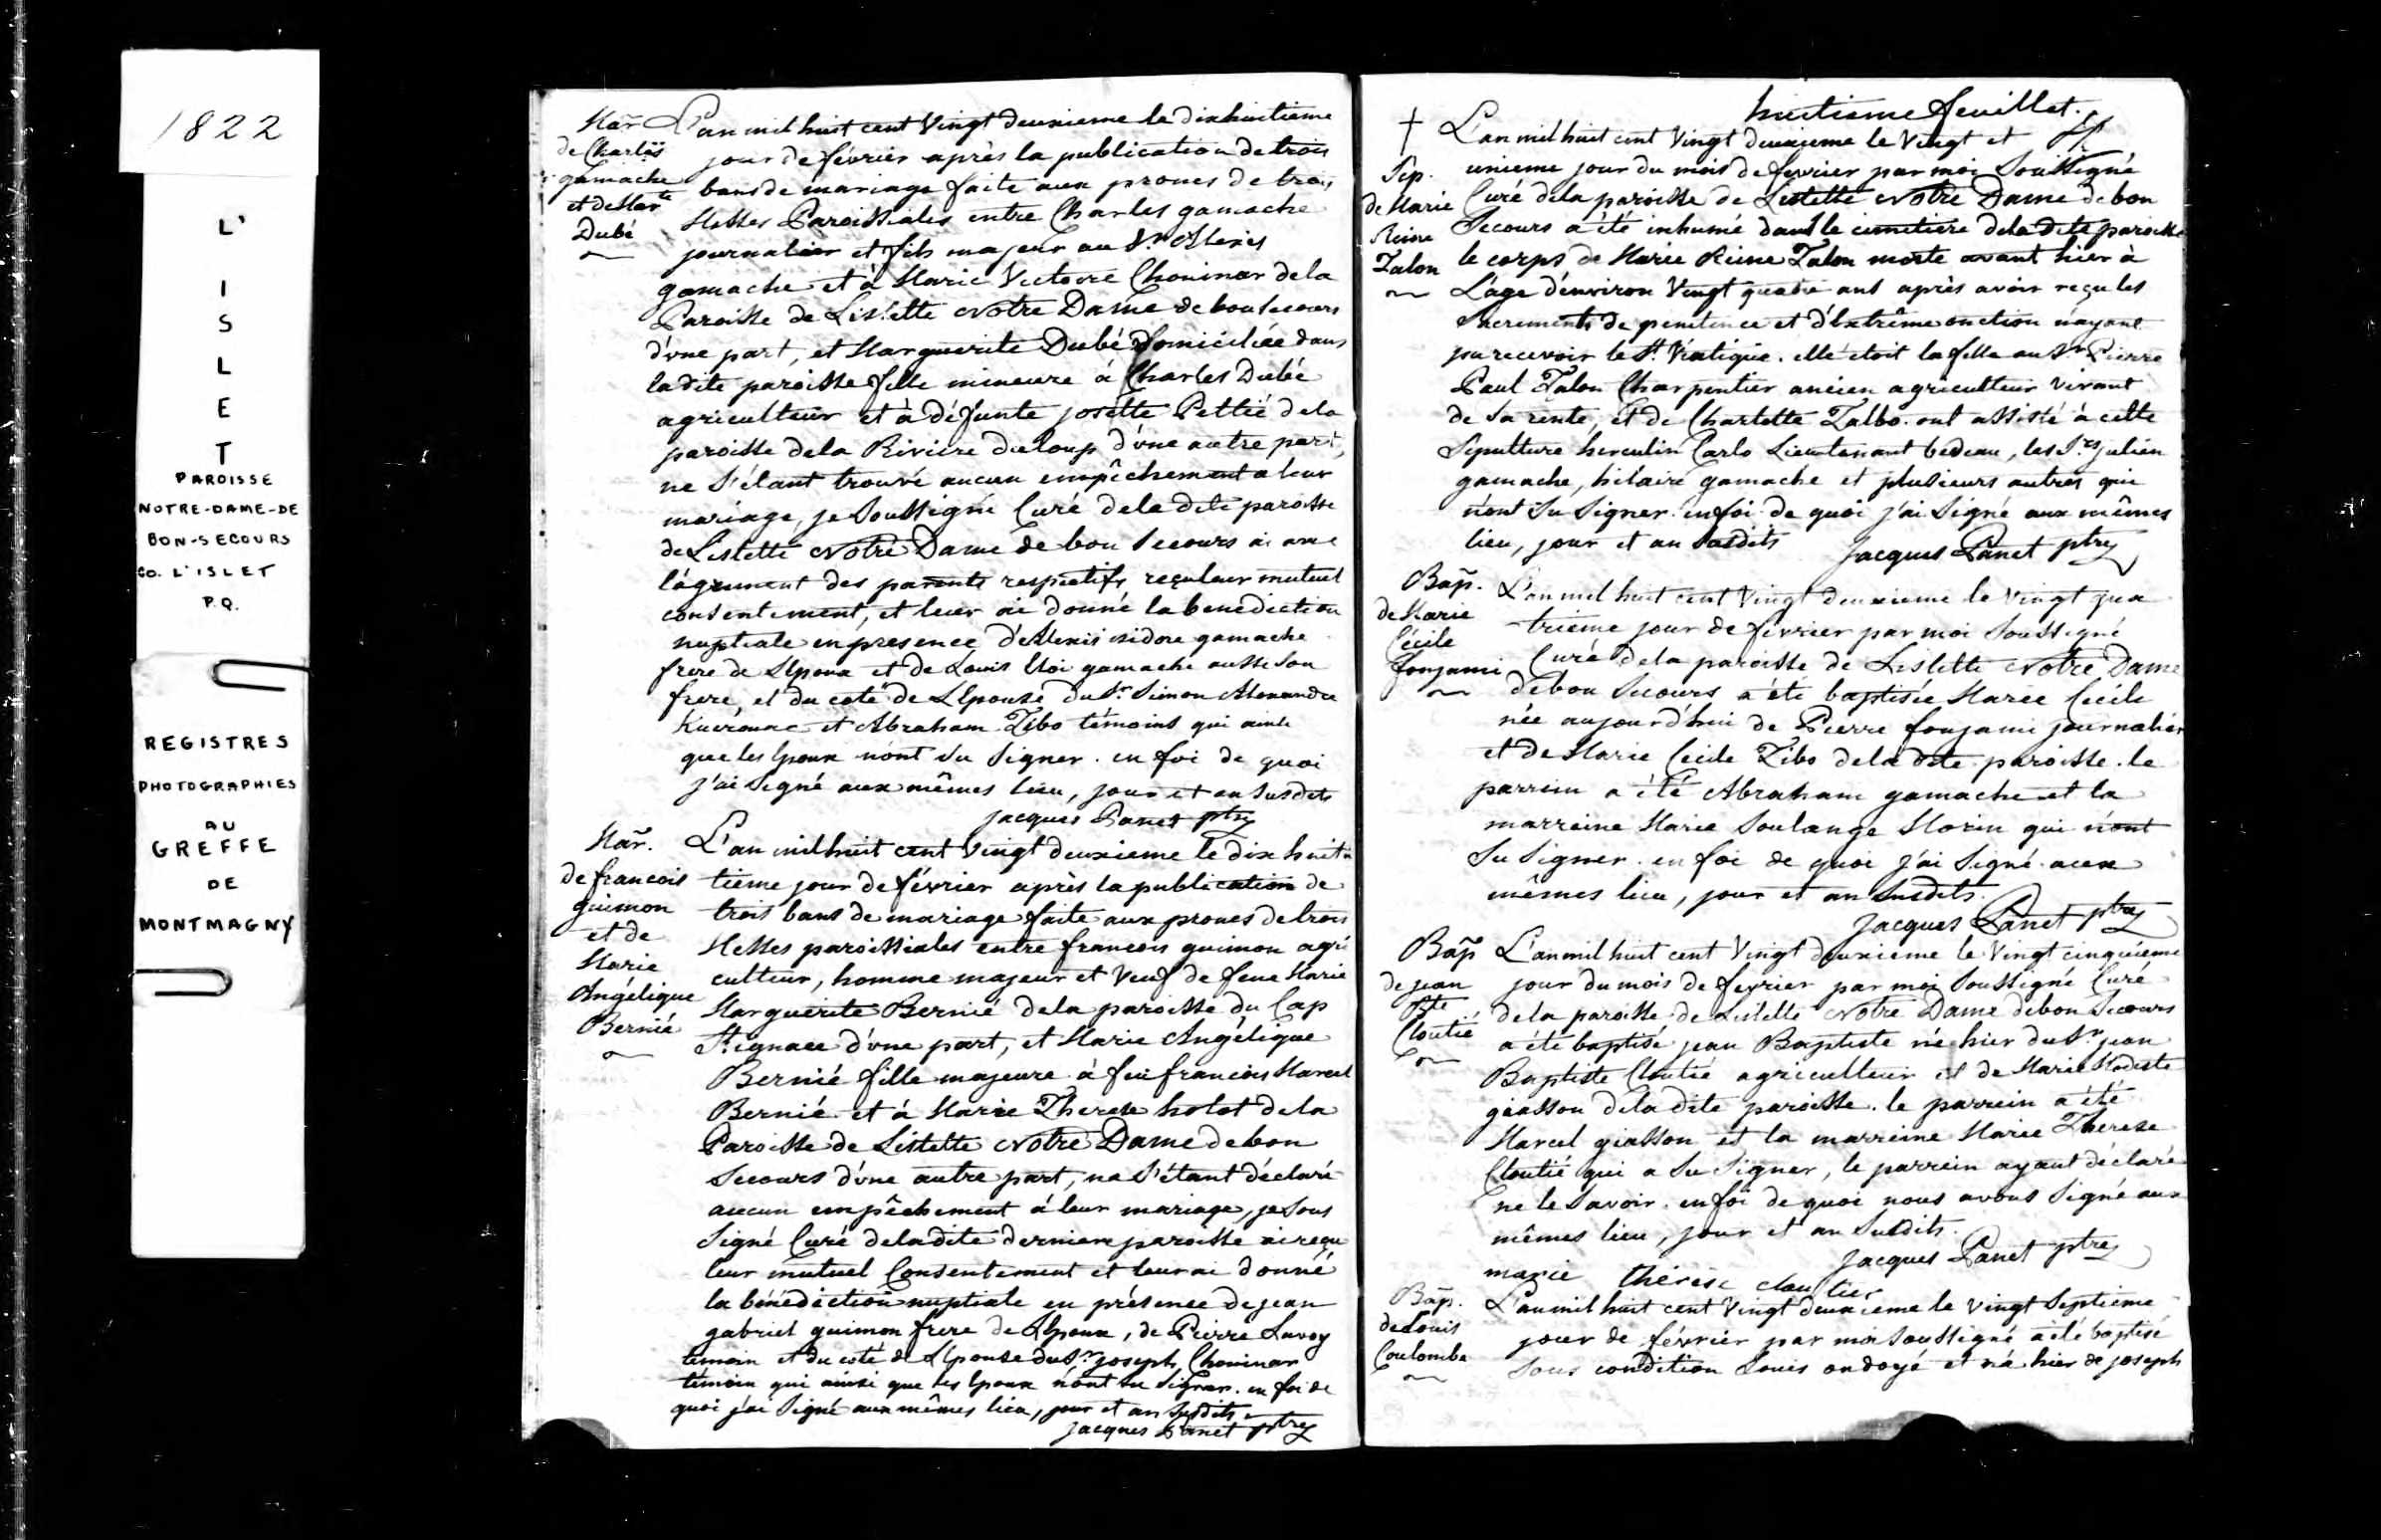 1822
L'
I
S
L
E
T
PAROISSE
NOTRE-DAME-DE
BON-SECOURS
CO. L'ISLET
P.Q.
REGISTRES
PHOTOGRAPHIES
AU
GREFFE
DE
MONTMAGNY
Mar
de Charles
gamache
et de Marte
Dubé
L'an mil huit cent Vingt deuxieme le dixhuitieme
jour de février après la publication de trois
bans de mariage faite aux prones de trois
Messes Paroissiales entre Charles gamache
journalier et fils majeur au Sr Alexis
gamache et à Marie Victoire Chouinar de la
Paroisse de Lislette Notre Dame de bon Secours
d'une part, et Marguerite Dubé domiciliée dans
la dite paroisse fille mineure à Charles Dubé
agriculteur et à défunte josette Pettié de la
paroisse de la Riviere du loup d'une autre part,
ne s'étant trouvé aucun empêchement a leur
mariage, je Soussigné Curé de la dite paroisse
de Lislette Notre Dame de bon Secours ai avec
l'agrement des parents respectifs reçu leur mutuel
consentement, et leur ai donné la benediction
nuptiale en presence d'Alexis isidore gamache
frere de L'Epoux et de Louis Eloi gamache aussi son
frere, et du coté de L'Epouse du Sr Simon Alexandre
Kuerouac et Abraham Tibo témoins qui ainsi
que les Epoux n'ont su signer. en foi de quoi
j'ai signé aux mêmes lieu, jour et an susdits
jacques Panet ptre
Mar.
de francois
guimon
et de
Marie
Angélique
Bernié
L'an mil huit cent Vingt deuxieme le dix huit
tieme jour de février après la publication de
trois bans de mariage faite aux prones de trois
Messes paroissiales entre francois guimon agri
culteur, homme majeur et Veuf de feue Marie
Marguerite Bernié de la paroisse du Cap
St ignace d'une part, et Marie Angélique
Bernié fille majeure à feu francois Marcel
Bernié et à Marie Therese holot de la
Paroisse de Lislette Notre Dame de bon
Secours d'une autre part, ne s'étant déclaré
aucun empêchement à leur mariage, je sous
signé Curé de la dite derniere paroisse ai reçu
leur mutuel Consentement et leur ai donné
la bénédiction nuptiale en présence de jean
gabriel guimon frere de L'Epoux, de Pierre Lavoy
témoin et du coté de L'Epouse du Sr joseph Chouinar
témoin qui ainsi que les Epoux n'ont su Signer. en foi de
quoi j'ai Signé aux mêmes lieu, jour et an susdits.
jacques Panet ptre
huitieme feuillet.
†
Sep.
de Marie
Reine
Talon
L'an mil huit cent Vingt deuxieme le Vingt et
unieme jour du mois de fevrier par moi Soussigné
Curé de la paroisse de Lislette Notre Dame de bon
Secours a été inhumé dans le cimetiere de la dite paroisse
le corps de Marie Reine Talon morte avant hier à
L'age d'environ Vingt quatre ans après avoir reçu les
Sacrements de penitence et d'Extrême onction n'ayant
pu recevoir le St. Viatique. elle étoit la fille au Sr Pierre
Paul Talon Charpentier ancien agriculteur vivant
de sa rente, et de Charlotte Talbo. ont assisté à cette
Sepulture herculin Carlo Lieutenant bedeau, les Srs julien
gamache, hilaire gamache et plusieurs autres qui
n'ont su signer. en foi de quoi j'ai Signé aux mêmes
lieu, jour et an susdits
jacques Panet ptre
Bap.
de Marie
Cécile
fonjami
L'an mil huit cent Vingt deuxieme le vingt qua
trieme jour de février par moi Soussigné
Curé de la paroisse de Lislette Notre Dame
de bon Secours a été baptisée Marie Cécile
née aujourd'hui de Pierre fonjami journalier
et de Marie Cecile Tibo de la dite paroisse. le
parrein a été Abraham gamache et la
marreine Marie Soulange Morin qui n'ont
su signer. en foi de quoi j'ai signé aux
mêmes lieu, jour et an susdits.
jacques Panet ptre
Bap
de jean
Bte
Cloutié
L'an mil huit cent Vingt deuxieme le Vingt cinquieme
jour du mois de fevrier par moi Soussigné Curé
de la paroisse de Lislette Notre Dame de bon Secours
a été baptisé jean Baptiste né hier du Sr jean
Baptiste Cloutié agriculteur et de Marie Modeste
giasson de la dite paroisse. le parrein a été
Marcel giasson et la marreine Marie Therese
Cloutié qui a su signer, le parrein ayant déclaré
ne le savoir. en foi de quoi nous avons Signé aux
mêmes lieu, jour et an susdits.
jacques Panet ptre
marie thérèse cloutier
Bap.
de Louis
Coulombe
L'an mil huit cent Vingt deuxieme le vingt Septieme
jour de février par moi soussigné a été baptisé
sous condition Louis ondoyé et né hier de joseph